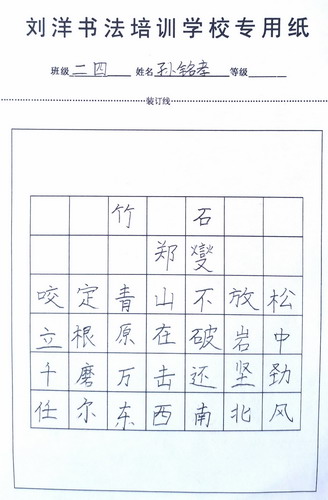 刘洋书法培训学校专用纸
班级二四 姓名孙铭孝 等级
装订线
竹石
郑燮
咬定青山不放松
立根原在破岩中
千磨万击还坚劲
任尔东西南北风